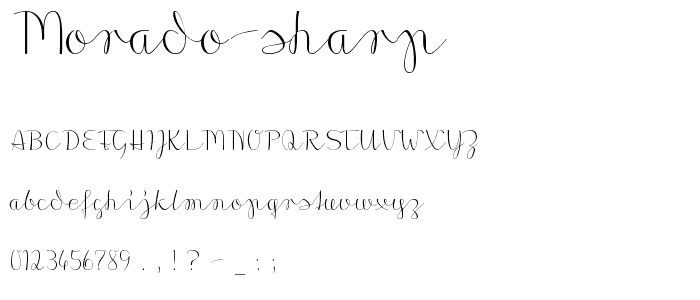 Morado-sharp
ABCDEFGHIJKLMNOPQRSTUVWXYZ
abcdefghijklmnopqrstuvwxyz
0123456789 . , ! ? - _ : ;